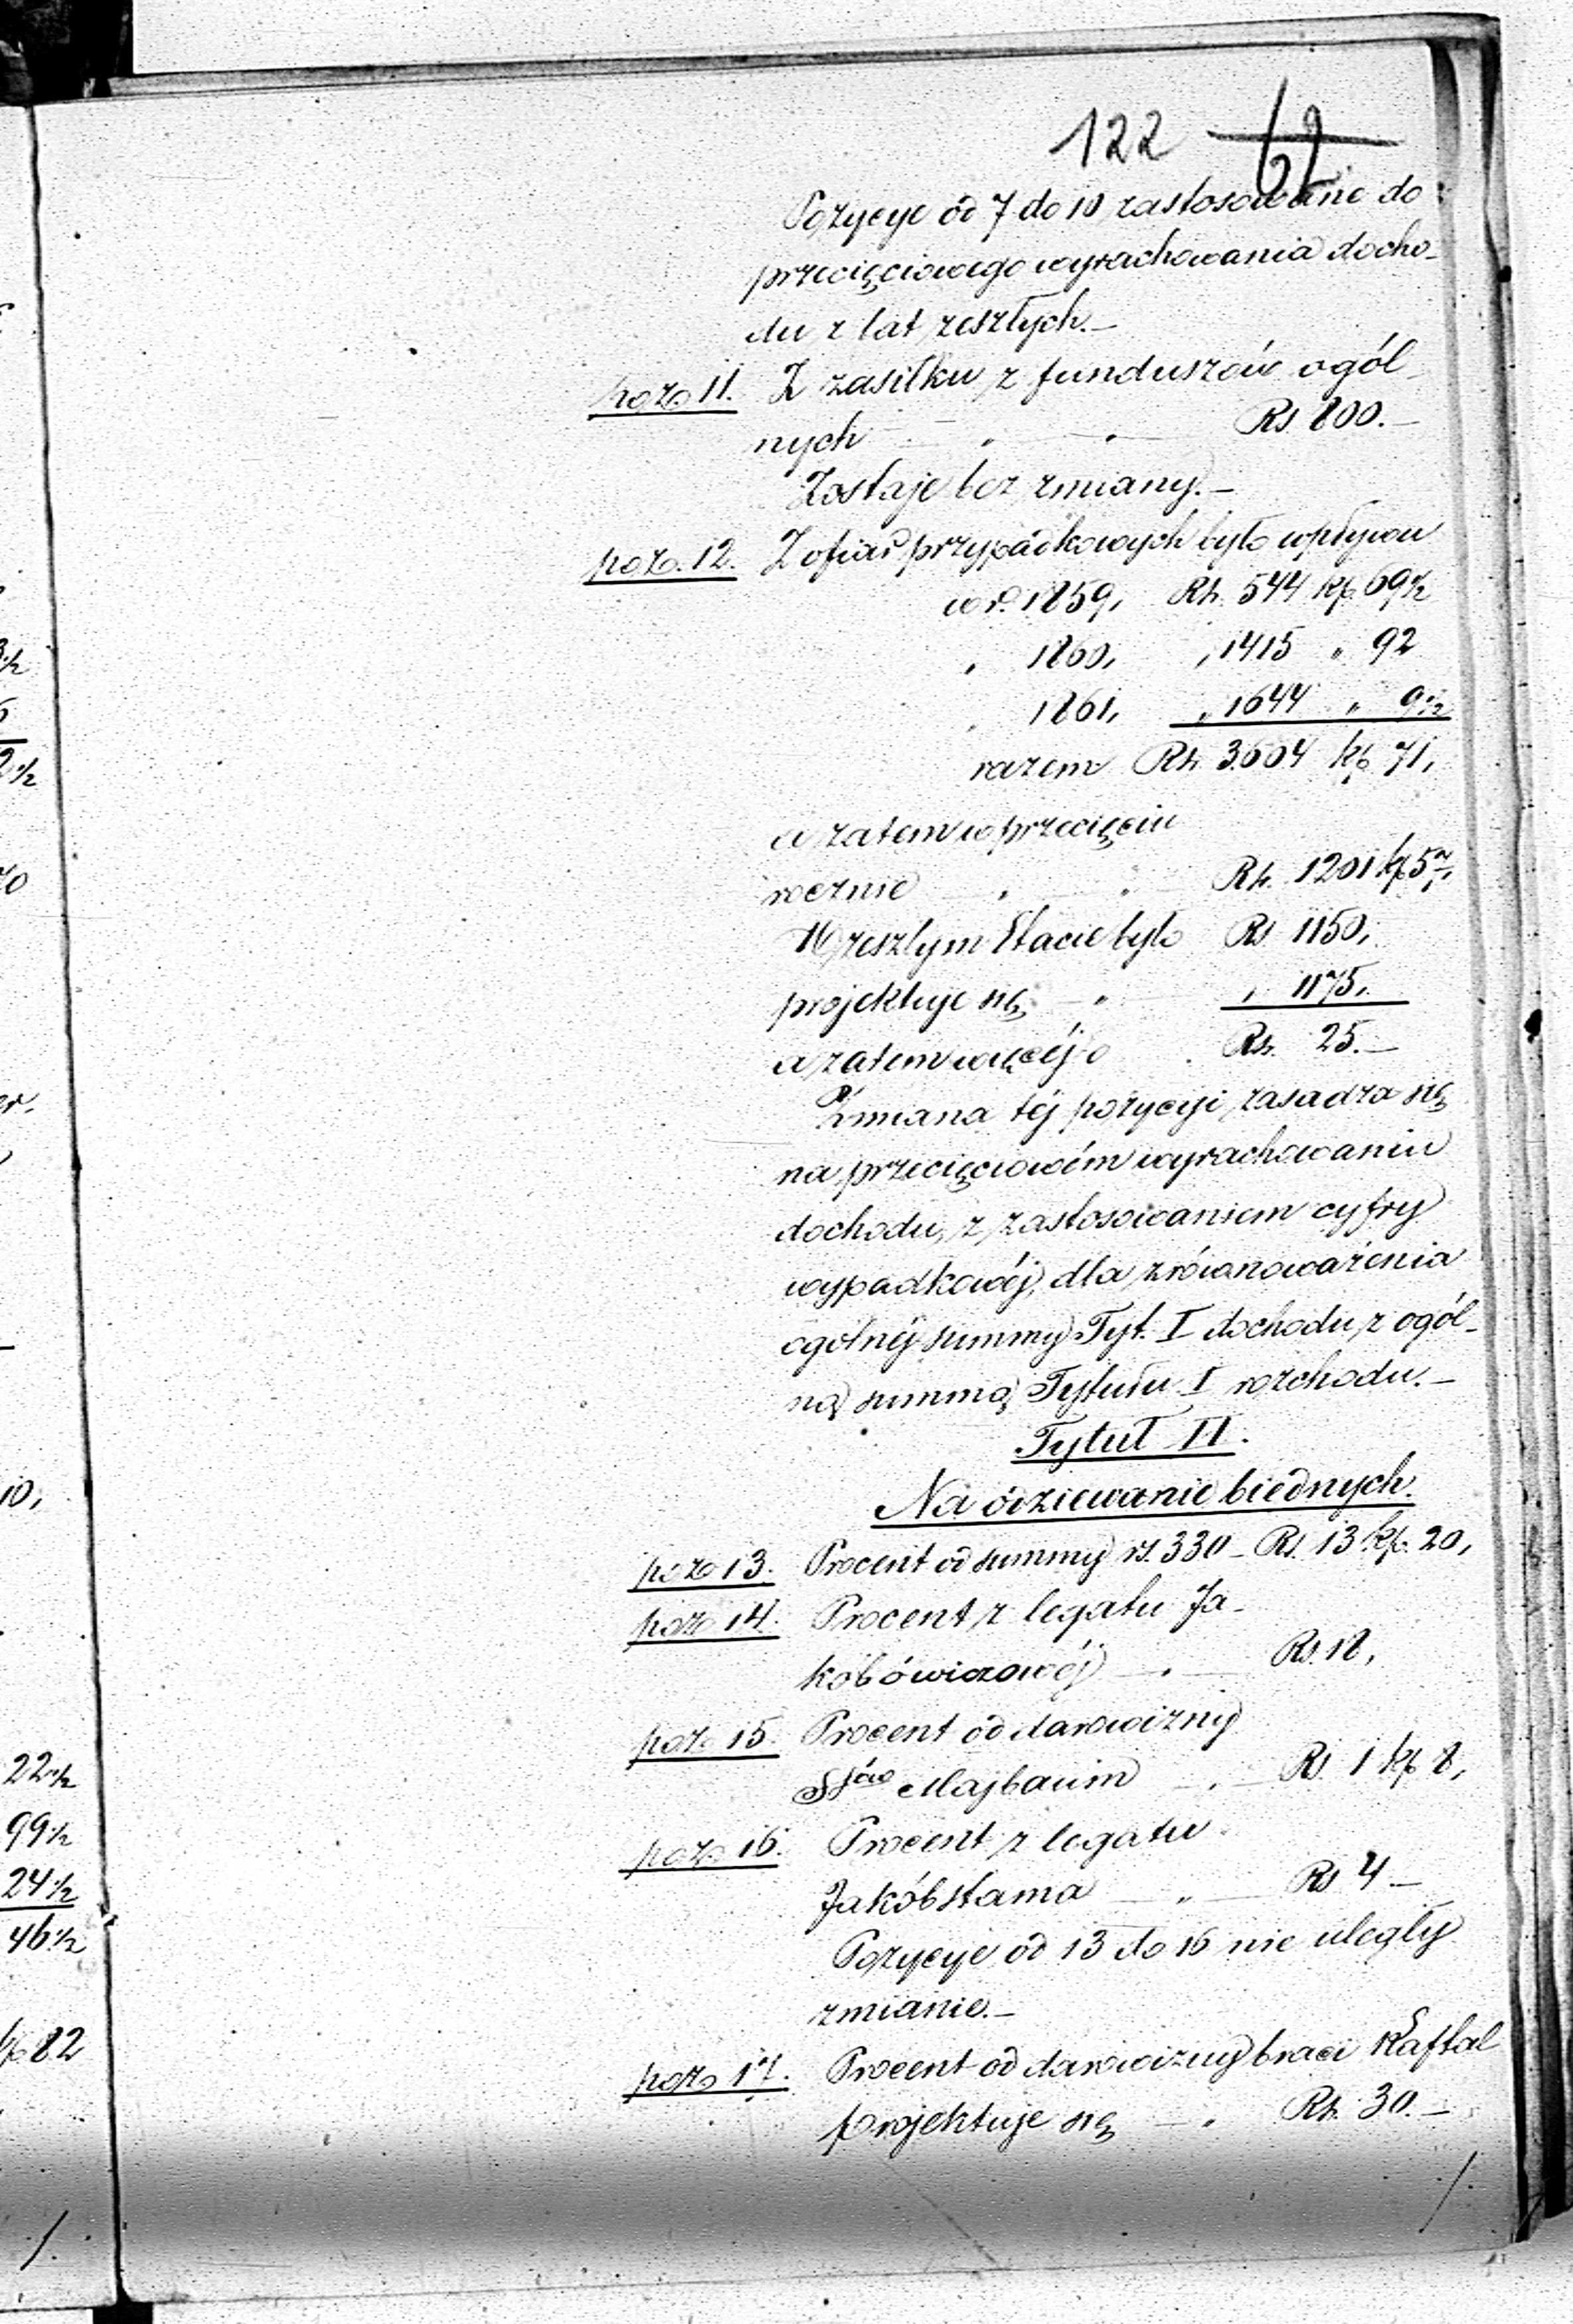 122 62
Pozycye od 7 do 10 zastosowane do
przecięciowego wyrachowania docho-
du z lat zeszłych.-
poz. 11. Z zasiłku z funduszów ogól-
nych " " Rs. 800.-
Zostaje bez zmiany.-
poz. 12. Z ofiar przypadkowych było wpływu
w r. 1859, Rs. 544 kp. 69½
" 1860, " 1415 " 92
" 1861, " 1644 " 9½
razem Rs. 3604 kp. 71,
a zatem w przecięciu
rocznie " " Rs. 1201 kp. 57,
W zeszłym Etacie było Rs. 1150,
projektuje się " " 1175,
a zatem więcéj o Rs. 25.-
Zmiana téj pozycyi zasadza się
na przecięciowém wyrachowaniu
dochodu, z zastosowaniem cyfry
wypadkowéj, dla zrównoważenia
ogólnéj summy Tyt. I dochodu z ogól-
ną summą Tytułu I rozchodu.-
Tytuł II.
Na odziewanie biednych.
poz. 13. Procent od summy rs. 330 - Rs. 13 kp. 20,
poz. 14. Procent z legatu Ja-
kobówiczowéj " Rs. 18,
poz. 15. Procent od darowizny
SSów Majbaum " Rs. 1 kp. 8,
poz. 16. Procent z legatu
Jakóbstama " Rs. 4 -
Pozycye od 13 do 16 nie uległy
zmianie.-
poz. 17. Procent od darowizny braci Kaftal
projektuje się " Rs. 30.-
3½
2½
10,
22½
99½
24½
46½
kp. 82